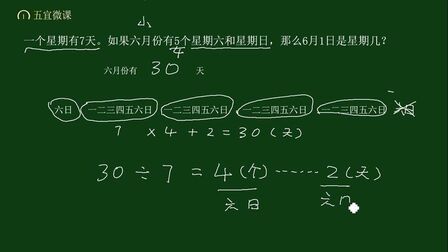 五宜微课
小
一个星期有7天。如果六月份有5个星期六和星期日，那么6月1日是星期几?
4
六月份有 30 天
六日 一二三四五六日 一二三四五六日 一二三四五六日 一二三四五六日 一 六日
7 × 4 + 2 = 30 (天)
30 ÷ 7 = 4 (个) …… 2 (天)
六日 六